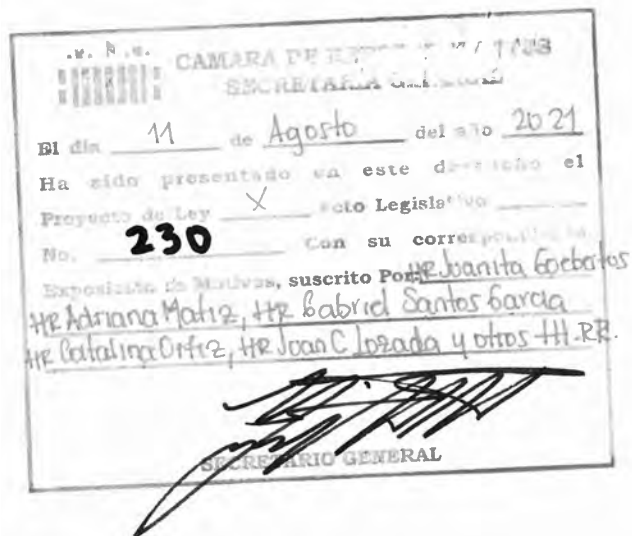 CAMARA DE
SECRETARIA GENERAL
El día 11 de Agosto del año 2021
Ha sido presentado en este despacho el
Proyecto de Ley X Acto Legislativo
No. 230 Con su correspondiente
Exposición de Motivos, suscrito Por: HR Juanita Goebertus
HR Adriana Matiz, HR Gabriel Santos Garcia
HR Catalina Ortiz, HR Juan C Lozada y otros HH.RR.
SECRETARIO GENERAL